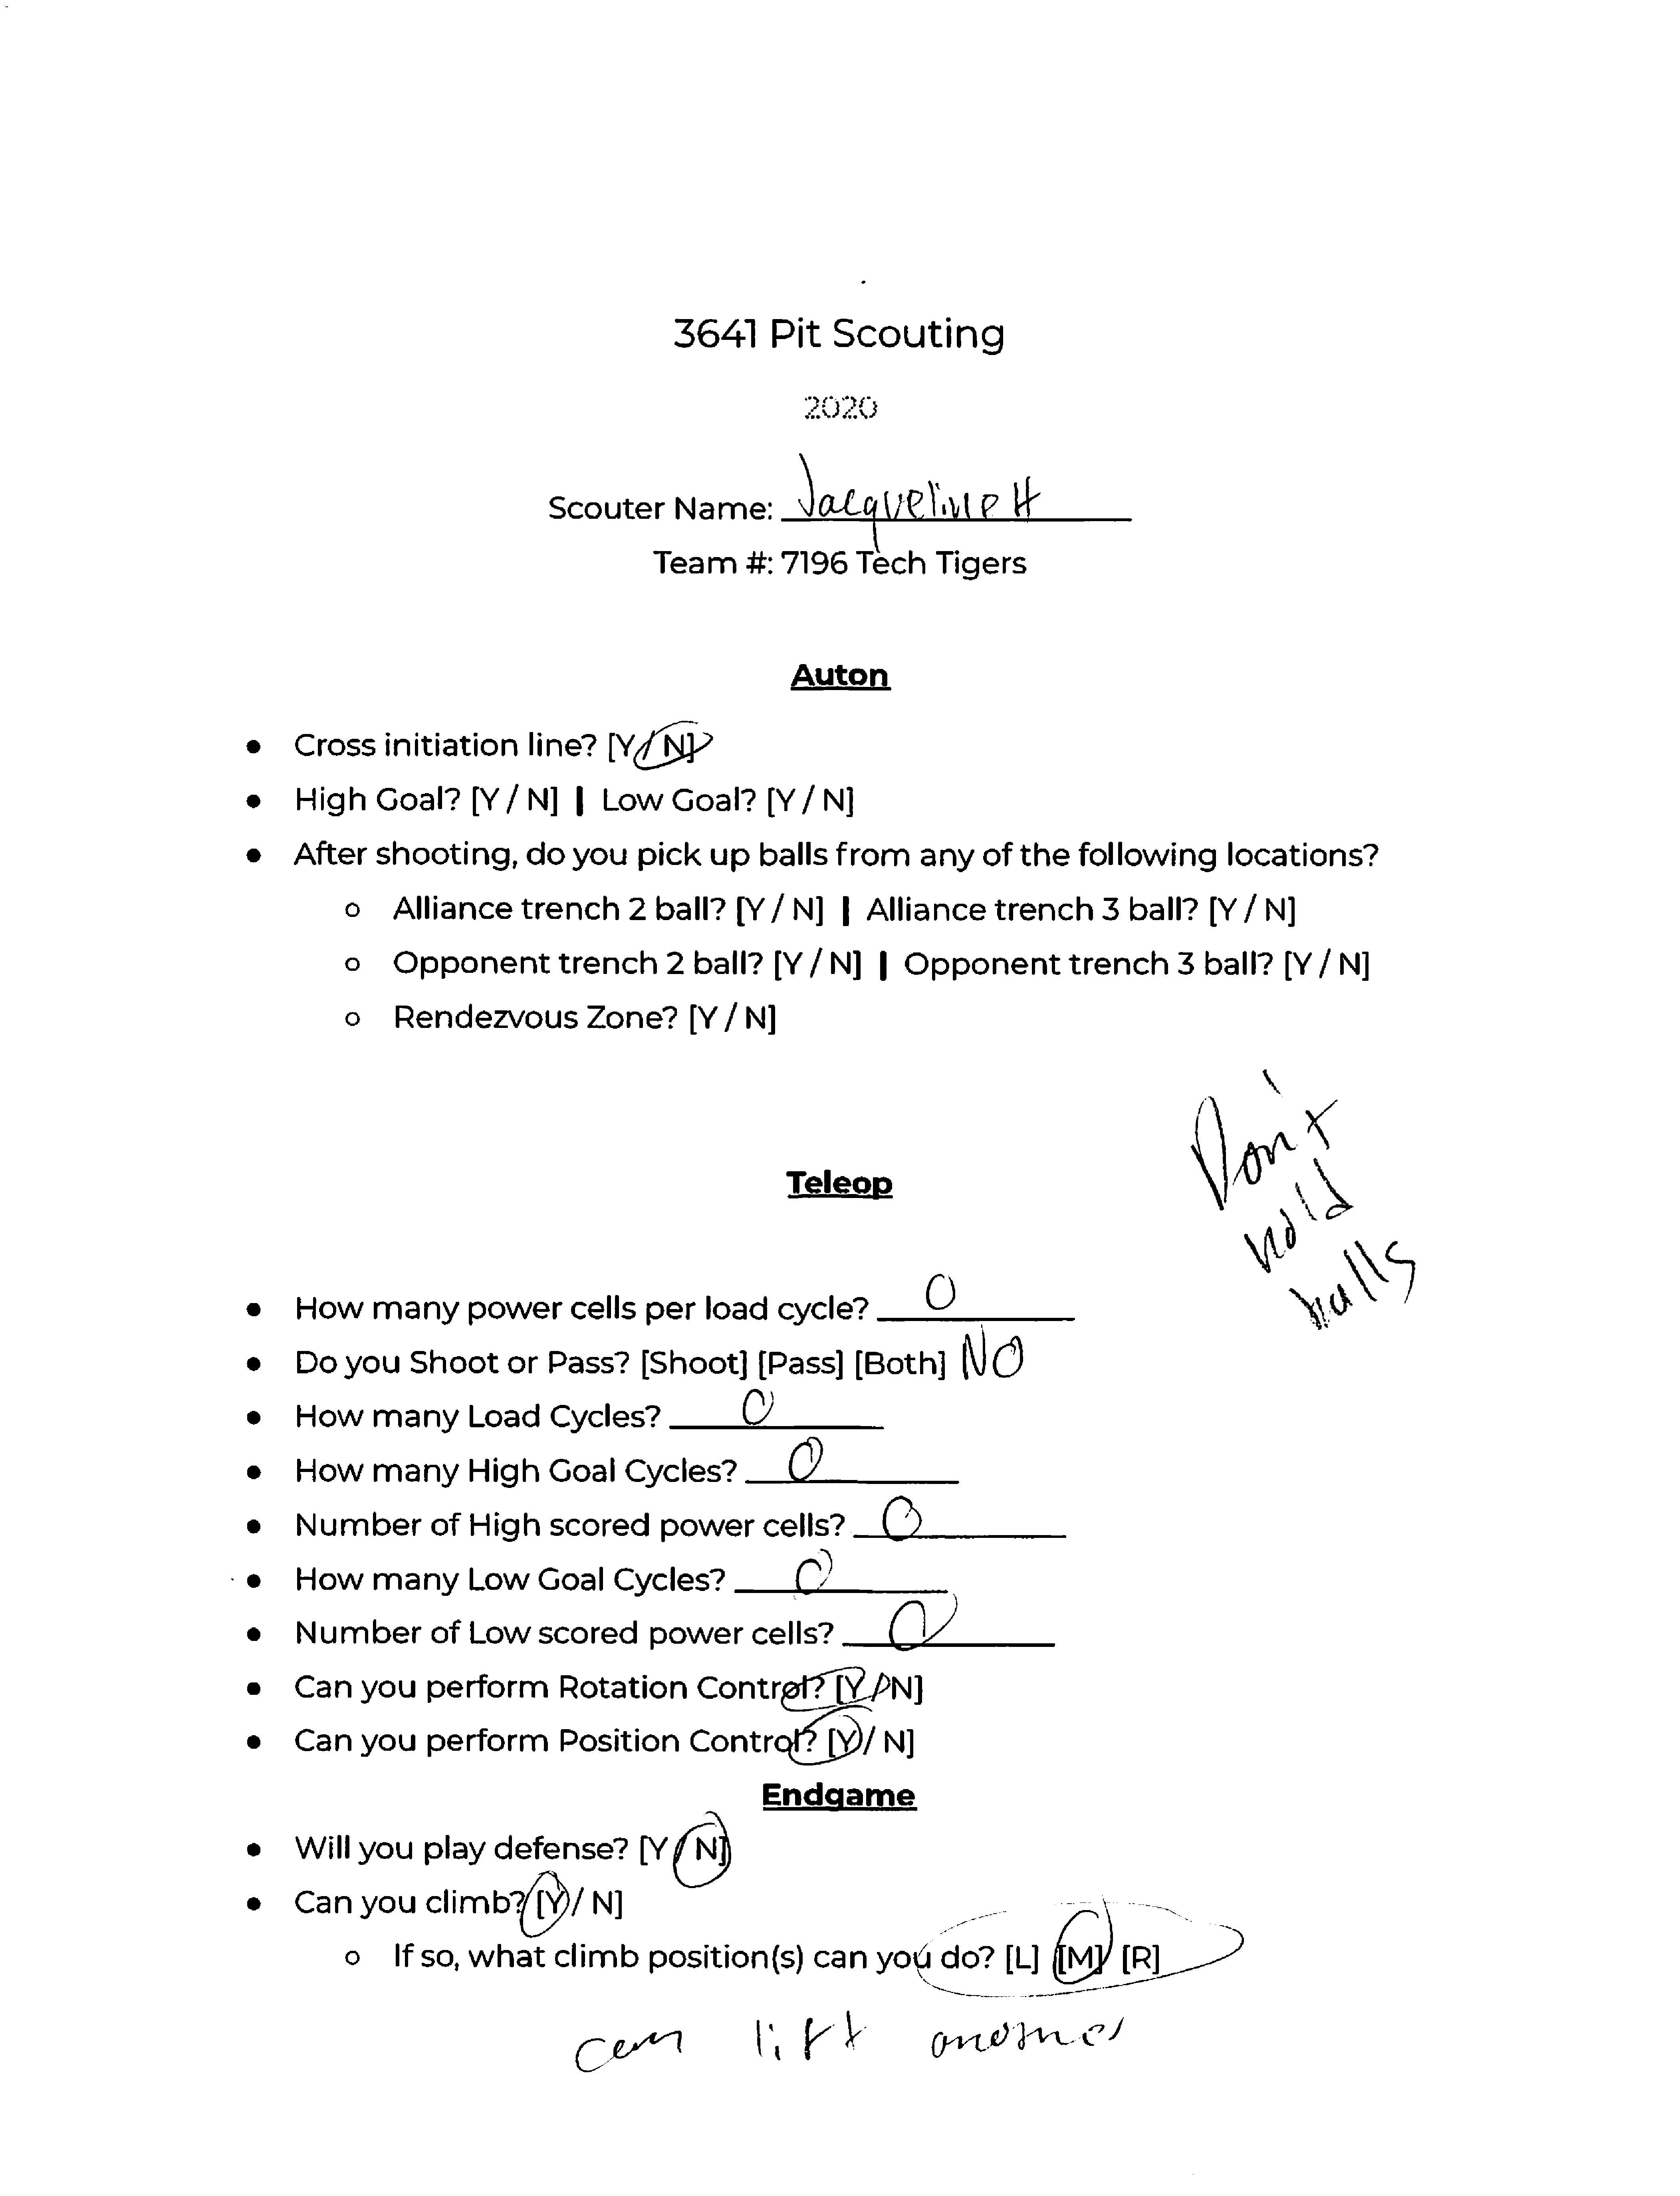 3641 Pit Scouting
2020
Scouter Name: Jacqueline H
Team #: 7196 Tech Tigers
Auton
● Cross initiation line? [Y / N]
● High Goal? [Y / N] | Low Goal? [Y / N]
● After shooting, do you pick up balls from any of the following locations?
○ Alliance trench 2 ball? [Y / N] | Alliance trench 3 ball? [Y / N]
○ Opponent trench 2 ball? [Y / N] | Opponent trench 3 ball? [Y / N]
○ Rendezvous Zone? [Y / N]
Don't
hold
balls
Teleop
● How many power cells per load cycle? 0
● Do you Shoot or Pass? [Shoot] [Pass] [Both] NO
● How many Load Cycles? 0
● How many High Goal Cycles? 0
● Number of High scored power cells? 0
● How many Low Goal Cycles? 0
● Number of Low scored power cells? 0
● Can you perform Rotation Control? [Y / N]
● Can you perform Position Control? [Y / N]
Endgame
● Will you play defense? [Y / N]
● Can you climb? [Y / N]
○ If so, what climb position(s) can you do? [L] [M] [R]
can lift another